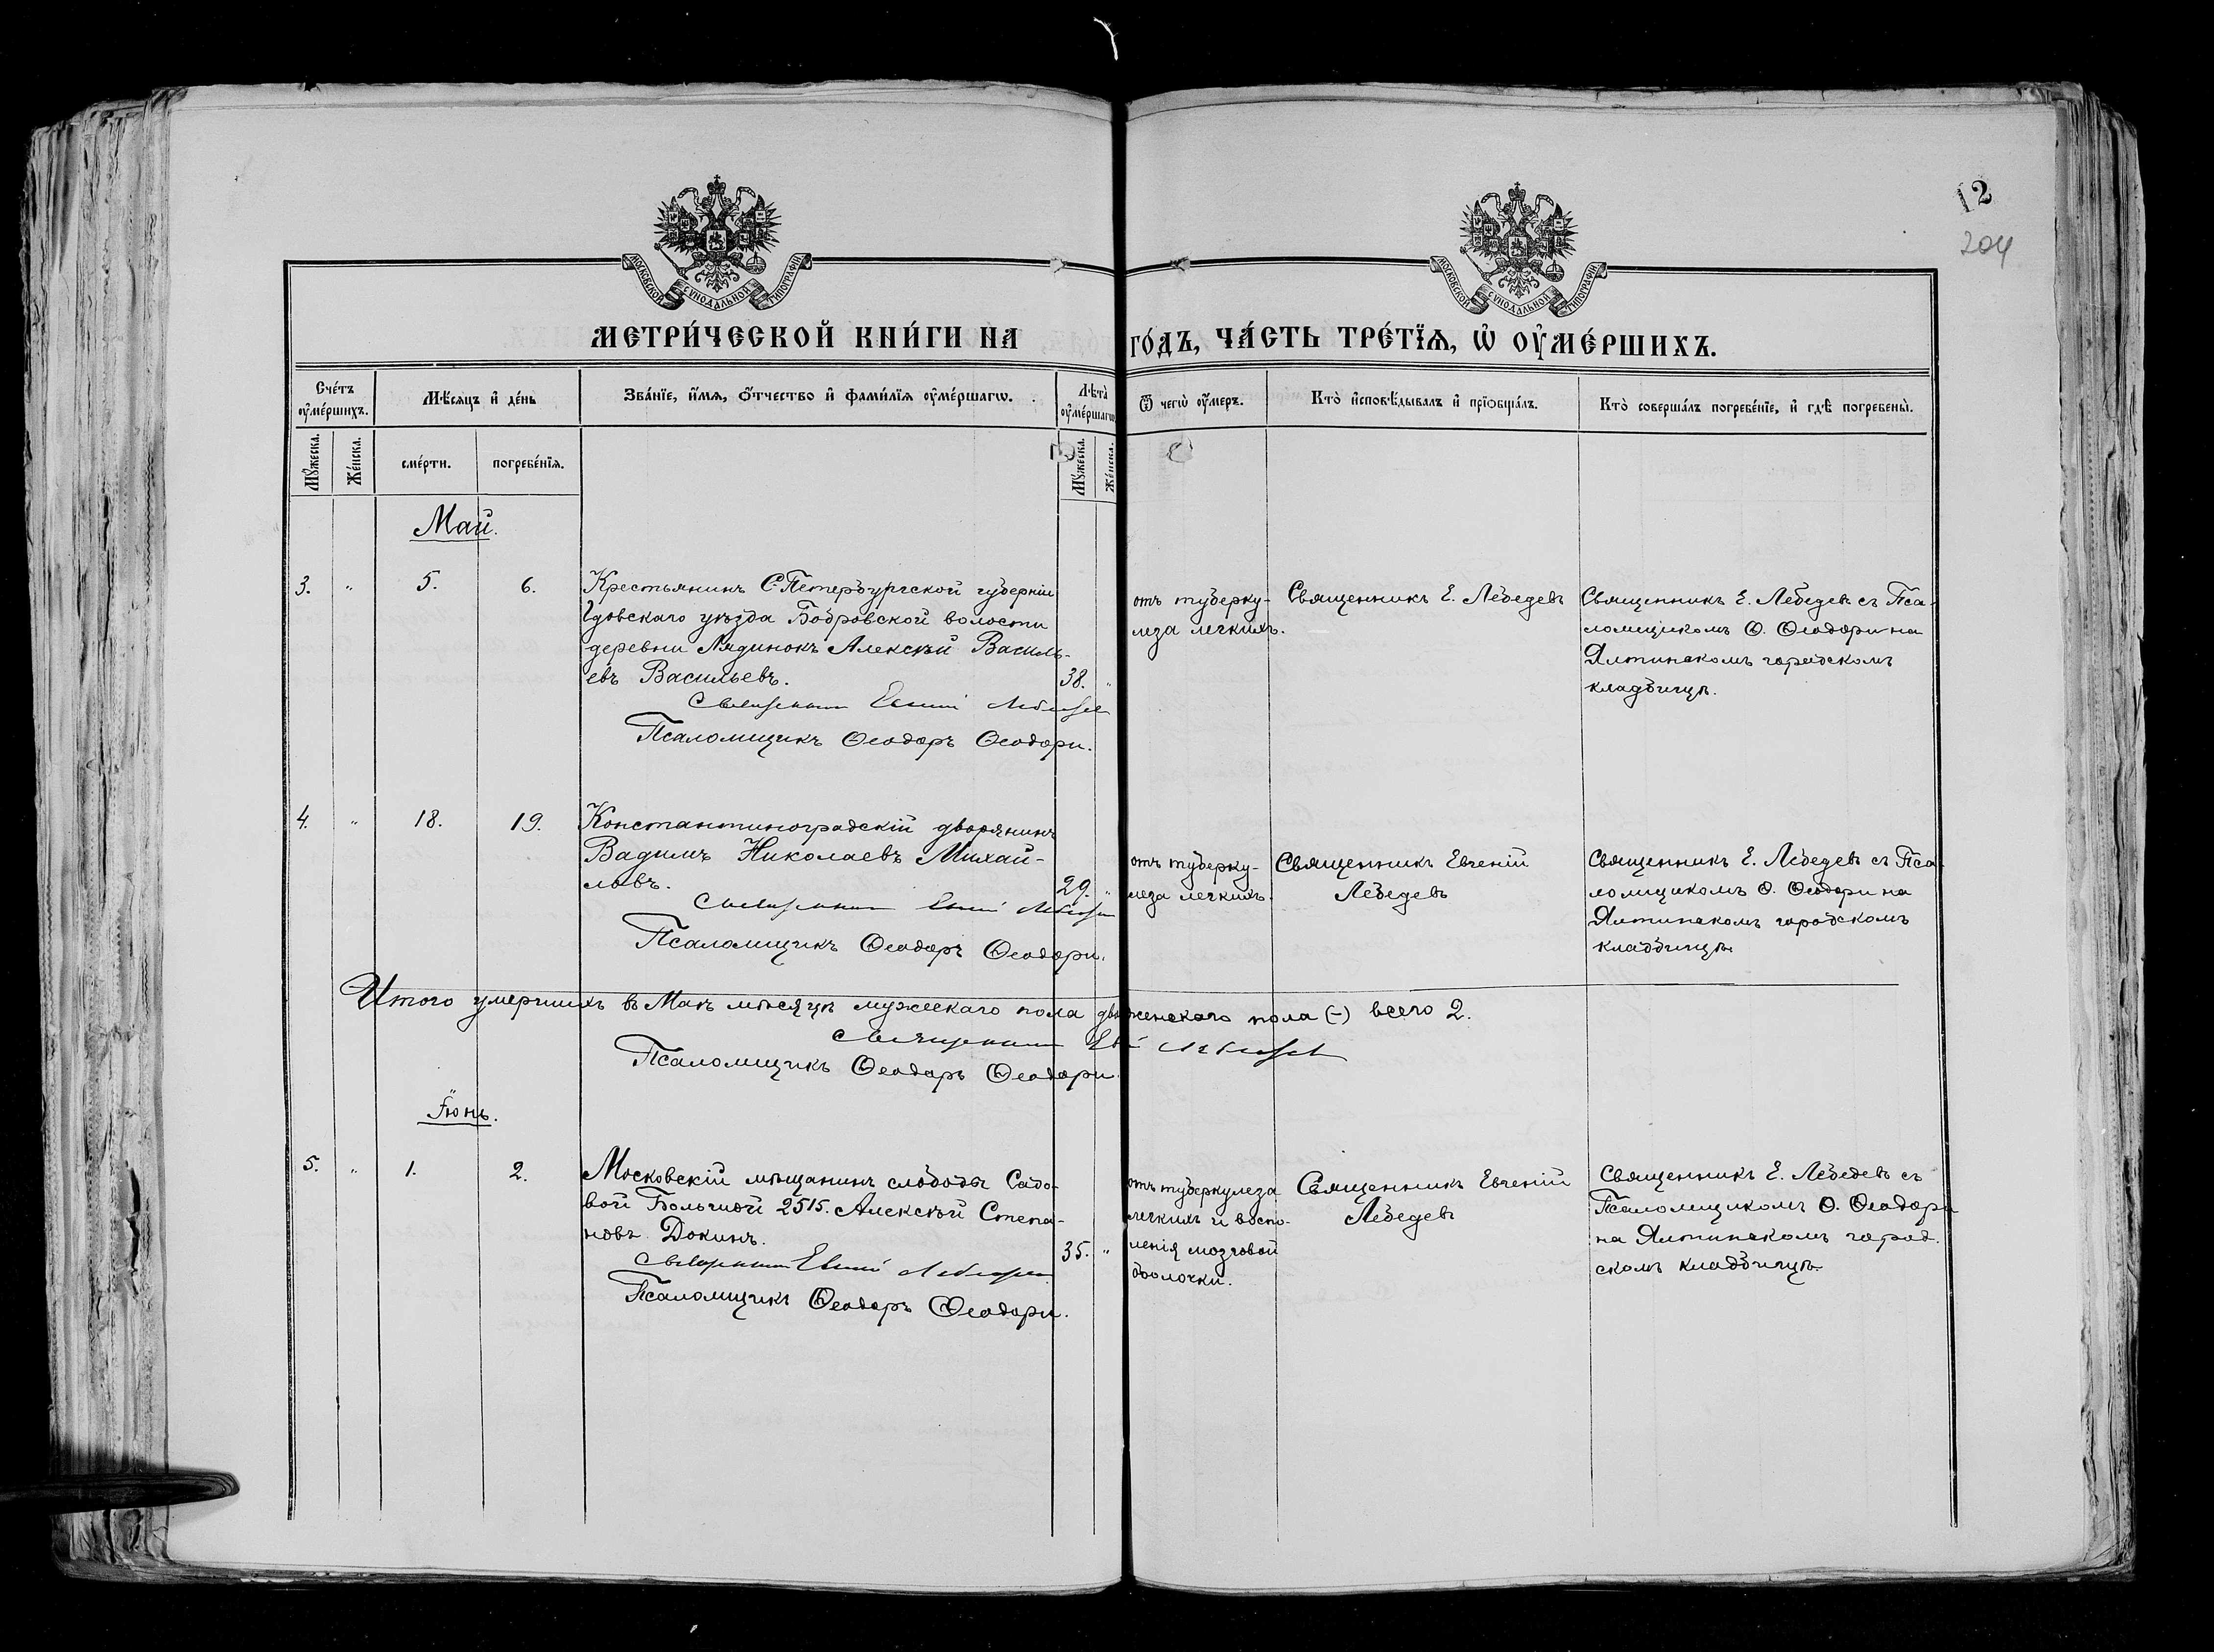 12
204
МОСКОВСКОЙ СѴНОДАЛЬНОЙ ТИПОГРАФІИ
МОСКОВСКОЙ СѴНОДАЛЬНОЙ ТИПОГРАФІИ
МЕТРИ́ЧЕСКОЙ КНИ́ГИ НА ГО́ДЪ, ЧА́СТЬ ТРЕ́ТЇѦ, Ѡ҆ ОУ҆МЕ́РШИХЪ.
Сче́тъ оу҆ме́ршихъ.
Мѣ́сѧцъ и҆ де́нь
Зва́нїе, и҆́мѧ, ѻ҆́тчество и҆ фами́лїѧ оу҆ме́ршагѡ.
Лѣта̀ оу҆ме́ршагѡ
Ѿ чегѡ̀ оу҆́меръ.
Кто̀ и҆сповѣ́дывалъ и҆ прїѻбща́лъ.
Кто̀ соверша́лъ погребе́нїе, и҆ гдѣ̀ погребены̀.
Мꙋ́жеска.
Же́нска.
сме́рти.
погребе́нїѧ.
Мꙋ́жеска.
Же́нска.
Май.
3. " 5. 6.
Крестьянинъ С.-Петербургской губерніи
Гдовскаго уѣзда Бобровской волости
деревни Лядинокъ Алексѣй Василь-
евъ Васильевъ.
38. "
Священникъ Евгеній Лебедев
Псаломщикъ Ѳеодоръ Ѳеодори.
отъ туберку-
леза легкихъ.
Священникъ Е. Лебедевъ
Священникъ Е. Лебедевъ съ Пса-
ломщикомъ Ѳ. Ѳеодори на
Ялтинскомъ городскомъ
кладбищѣ.
4. " 18. 19.
Константиноградскій дворянинъ
Вадимъ Николаевъ Михай-
ловъ.
29. "
Священникъ Евгеній Лебедев
Псаломщикъ Ѳеодоръ Ѳеодори.
отъ туберку-
леза легкихъ.
Священникъ Евгеній
Лебедевъ
Священникъ Е. Лебедевъ съ Пса-
ломщикомъ Ѳ. Ѳеодори на
Ялтинскомъ городскомъ
кладбищѣ.
Итого умершихъ въ Маѣ мѣсяцѣ мужескаго пола два женскаго пола (-) всего 2.
Священникъ Евгеній Лебедев
Псаломщикъ Ѳеодоръ Ѳеодори.
Іюнь.
5. " 1. 2.
Московскій мѣщанинъ слободы Садо-
вой Большой 2515. Алексѣй Степа-
новъ Докинъ.
35. "
Священникъ Евгеній Лебедев
Псаломщикъ Ѳеодоръ Ѳеодори.
отъ туберкулеза
легкихъ и воспа-
ленія мозговой
оболочки.
Священникъ Евгеній
Лебедевъ
Священникъ Е. Лебедевъ съ
Псаломщикомъ Ѳ. Ѳеодори
на Ялтинскомъ город-
скомъ кладбищѣ.